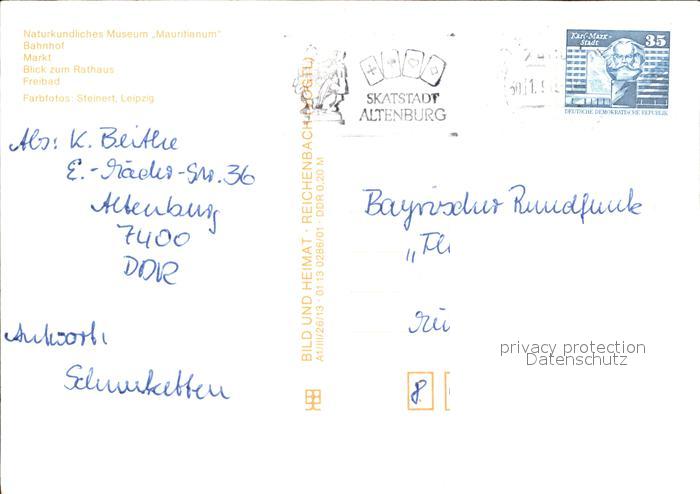 Naturkundliches Museum „Mauritianum"
Bahnhof
Markt
Blick zum Rathaus
Freibad
Farbfotos: Steinert, Leipzig
Abs: K. Beithe
E.- -Str. 36
Altenburg
7400
DDR
Antwort:
Schmuckketten
BILD UND HEIMAT · REICHENBACH (VOGTL)
A1/III/26/13 · 01 13 0286/01 · DDR 0,20 M
SKATSTADT
ALTENBURG
Karl-Marx-
Stadt
35
DEUTSCHE DEMOKRATISCHE REPUBLIK
Bayrischer Rundfunk
8.
privacy protection
Datenschutz